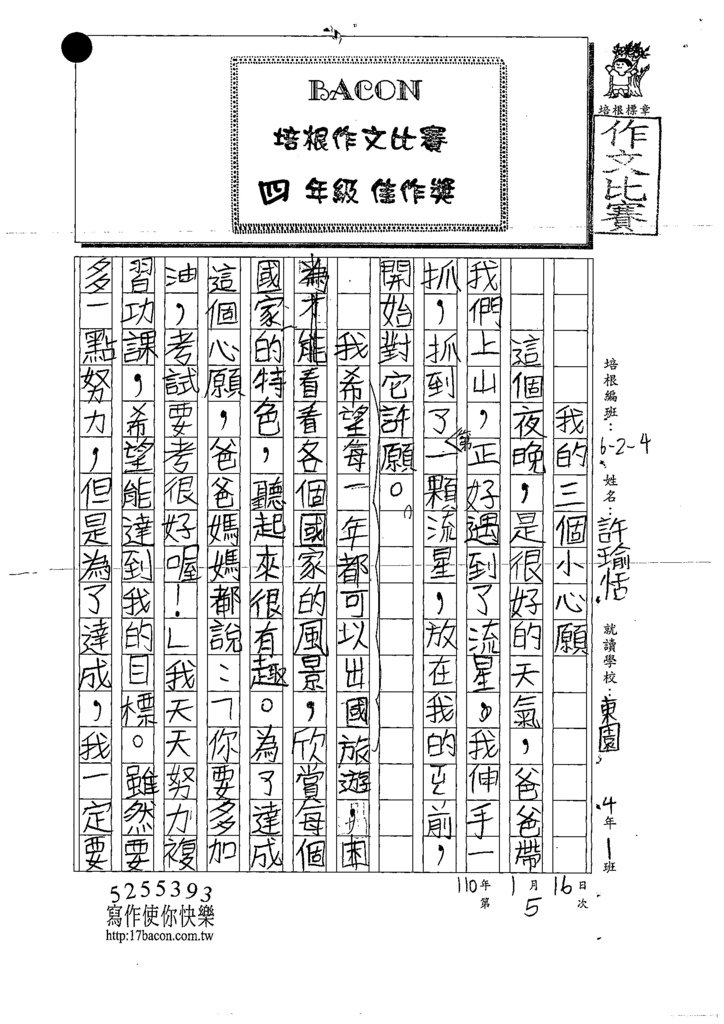 BACON
培根作文比賽
四年級佳作獎
培根標章
作文比賽
培根編班：6-2-4 姓名：許瑜恬 就讀學校：東園 4年1班
我的三個小心願
這個夜晚，是很好的天氣，爸爸帶
我們上山，正好遇到了流星，我伸手一
抓，抓到了第一顆流星，放在我的正前，
開始對它許願。
我希望每一年都可以出國旅遊，因
為才能看看各個國家的風景，欣賞每個
國家的特色，聽起來很有趣。為了達成
這個心願，爸爸媽媽都說：「你要多加
油，考試要考很好喔！」我天天努力複
習功課，希望能達到我的目標。雖然要
多一點努力，但是為了達成，我一定要
110年1月16日
第5次
5255393
寫作使你快樂
http:17bacon.com.tw